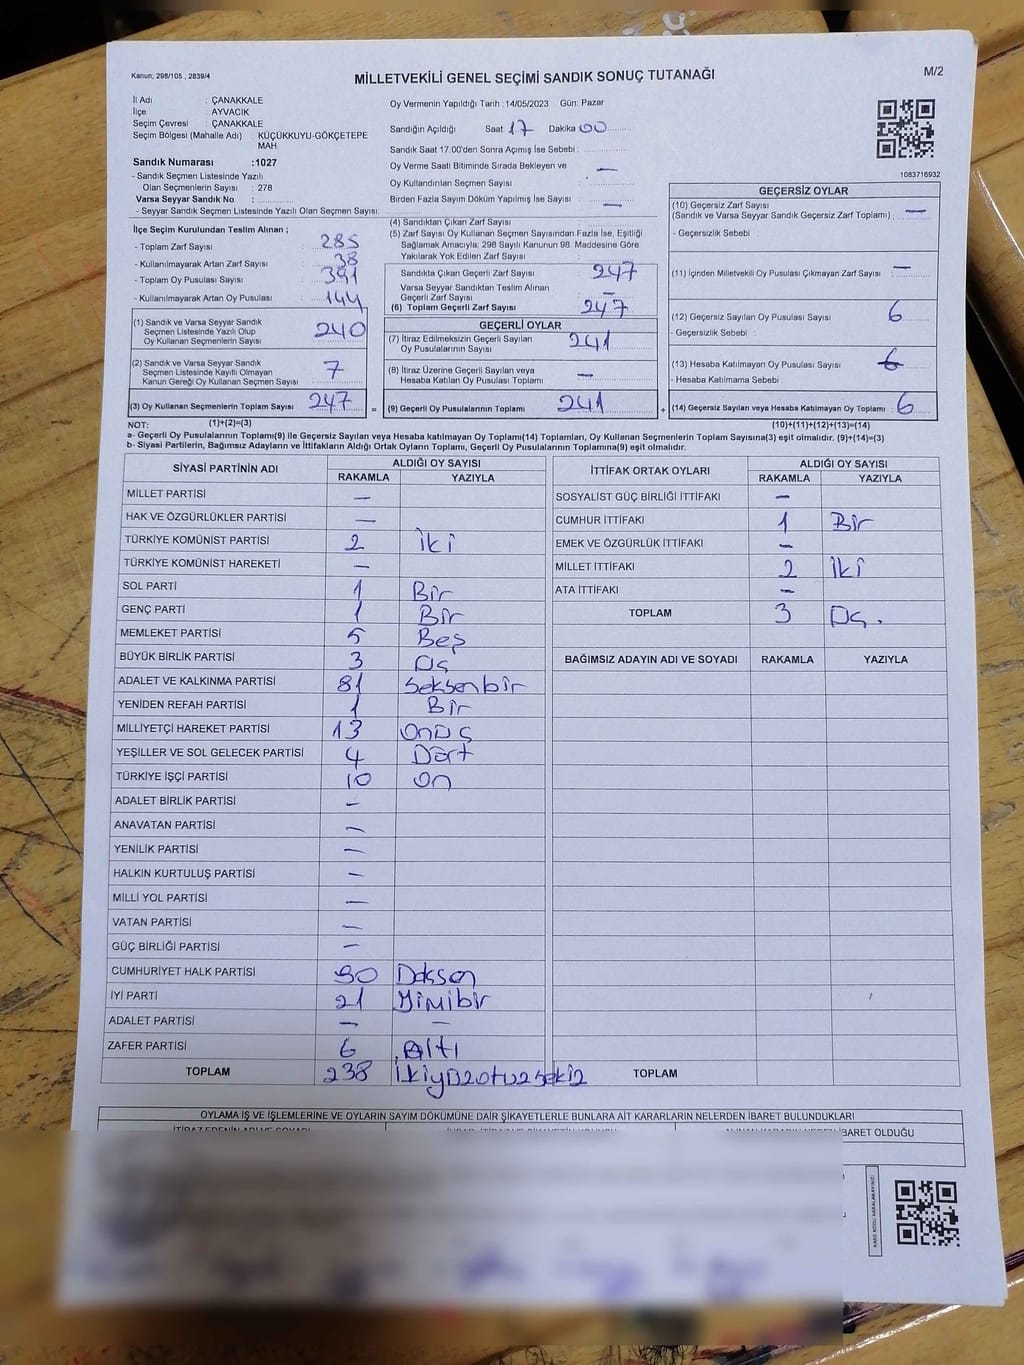 Kanun; 298/105 , 2839/4
MİLLETVEKİLİ GENEL SEÇİMİ SANDIK SONUÇ TUTANAĞI
M/2
İl Adı : ÇANAKKALE
İlçe : AYVACIK
Seçim Çevresi : ÇANAKKALE
Seçim Bölgesi (Mahalle Adı) : KÜÇÜKKUYU-GÖKÇETEPE MAH
Sandık Numarası :1027
- Sandık Seçmen Listesinde Yazılı
Olan Seçmenlerin Sayısı : 278
Varsa Seyyar Sandık No :
- Seyyar Sandık Seçmen Listesinde Yazılı Olan Seçmen Sayısı:
Oy Vermenin Yapıldığı Tarih :14/05/2023 Gün: Pazar
Sandığın Açıldığı Saat: 17 Dakika 00
Sandık Saat 17.00'den Sonra Açımış İse Sebebi :
Oy Verme Saati Bitiminde Sırada Bekleyen ve
Oy Kullandırılan Seçmen Sayısı : —
Birden Fazla Sayım Döküm Yapılmış İse Sayısı : —
1083716932
İlçe Seçim Kurulundan Teslim Alınan ;
- Toplam Zarf Sayısı : 285
- Kullanılmayarak Artan Zarf Sayısı : 38
- Toplam Oy Pusulası Sayısı : 391
- Kullanılmayarak Artan Oy Pusulası : 144
(1) Sandık ve Varsa Seyyar Sandık
Seçmen Listesinde Yazılı Olup
Oy Kullanan Seçmenlerin Sayısı : 240
(2) Sandık ve Varsa Seyyar Sandık
Seçmen Listesinde Kayıtlı Olmayan
Kanun Gereği Oy Kullanan Seçmen Sayısı : 7
(3) Oy Kullanan Seçmenlerin Toplam Sayısı : 247
(4) Sandıktan Çıkan Zarf Sayısı :
(5) Zarf Sayısı Oy Kullanan Seçmen Sayısından Fazla İse, Eşitliği
Sağlamak Amacıyla; 298 Sayılı Kanunun 98. Maddesine Göre
Yakılarak Yok Edilen Zarf Sayısı :
Sandıkta Çıkan Geçerli Zarf Sayısı : 247
Varsa Seyyar Sandıktan Teslim Alınan
Geçerli Zarf Sayısı : —
(6) Toplam Geçerli Zarf Sayısı : 247
GEÇERLİ OYLAR
(7) İtiraz Edilmeksizin Geçerli Sayılan
Oy Pusulalarının Sayısı : 241
(8) İtiraz Üzerine Geçerli Sayılan veya
Hesaba Katılan Oy Pusulası Toplamı : —
= (9) Geçerli Oy Pusulalarının Toplamı : 241
GEÇERSİZ OYLAR
(10) Geçersiz Zarf Sayısı
(Sandık ve Varsa Seyyar Sandık Geçersiz Zarf Toplamı) : —
- Geçersizlik Sebebi :
(11) İçinden Milletvekili Oy Pusulası Çıkmayan Zarf Sayısı : —
(12) Geçersiz Sayılan Oy Pusulası Sayısı : 6
- Geçersizlik Sebebi :
(13) Hesaba Katılmayan Oy Pusulası Sayısı : 6
- Hesaba Katılmama Sebebi :
+ (14) Geçersiz Sayılan veya Hesaba Katılmayan Oy Toplamı : 6
NOT: (1)+(2)=(3) (10)+(11)+(12)+(13)=(14)
a- Geçerli Oy Pusulalarının Toplamı(9) ile Geçersiz Sayılan veya Hesaba katılmayan Oy Toplamı(14) Toplamları, Oy Kullanan Seçmenlerin Toplam Sayısına(3) eşit olmalıdır. (9)+(14)=(3)
b- Siyasi Partilerin, Bağımsız Adayların ve İttifakların Aldığı Ortak Oyların Toplamı, Geçerli Oy Pusulalarının Toplamına(9) eşit olmalıdır.
SİYASİ PARTİNİN ADI ALDIĞI OY SAYISI
RAKAMLA YAZIYLA
MİLLET PARTİSİ —
HAK VE ÖZGÜRLÜKLER PARTİSİ —
TÜRKİYE KOMÜNİST PARTİSİ 2 İki
TÜRKİYE KOMÜNİST HAREKETİ —
SOL PARTİ 1 Bir
GENÇ PARTİ 1 Bir
MEMLEKET PARTİSİ 5 Beş
BÜYÜK BİRLİK PARTİSİ 3 Üç
ADALET VE KALKINMA PARTİSİ 81 Seksenbir
YENİDEN REFAH PARTİSİ 1 Bir
MİLLİYETÇİ HAREKET PARTİSİ 13 Onüç
YEŞİLLER VE SOL GELECEK PARTİSİ 4 Dört
TÜRKİYE İŞÇİ PARTİSİ 10 On
ADALET BİRLİK PARTİSİ —
ANAVATAN PARTİSİ —
YENİLİK PARTİSİ —
HALKIN KURTULUŞ PARTİSİ —
MİLLİ YOL PARTİSİ —
VATAN PARTİSİ —
GÜÇ BİRLİĞİ PARTİSİ —
CUMHURİYET HALK PARTİSİ 90 Doksan
İYİ PARTİ 21 Yirmibir
ADALET PARTİSİ — —
ZAFER PARTİSİ 6 Altı
TOPLAM 238 İkiyüzotuzsekiz
İTTİFAK ORTAK OYLARI ALDIĞI OY SAYISI
RAKAMLA YAZIYLA
SOSYALİST GÜÇ BİRLİĞİ İTTİFAKI —
CUMHUR İTTİFAKI 1 Bir
EMEK VE ÖZGÜRLÜK İTTİFAKI —
MİLLET İTTİFAKI 2 İki
ATA İTTİFAKI —
TOPLAM 3 Üç.
BAĞIMSIZ ADAYIN ADI VE SOYADI RAKAMLA YAZIYLA
TOPLAM
OYLAMA İŞ VE İŞLEMLERİNE VE OYLARIN SAYIM DÖKÜMÜNE DAİR ŞİKAYETLERLE BUNLARA AİT KARARLARIN NELERDEN İBARET BULUNDUKLARI
İTİRAZ EDENİN ADI VE SOYADI
ALINAN KARARIN NEDEN İBARET OLDUĞU